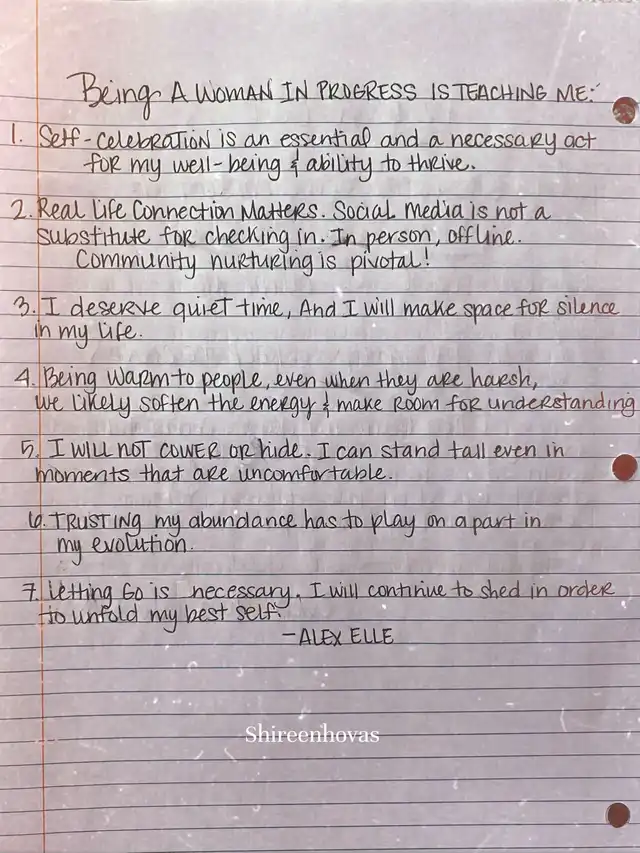 Being A WOMAN IN PROGRESS IS TEACHING ME:
1. Self-celebration is an essential and a necessary act
for my well-being & ability to thrive.
2. Real Life Connection Matters. Social Media is not a
substitute for checking in. In person, offline.
Community nurturing is pivotal!
3. I deserve quiet time, And I will make space for silence
in my life.
4. Being warm to people, even when they are harsh,
we likely soften the energy & make room for understanding
5. I WILL NOT COWER OR hide. I can stand tall even in
moments that are uncomfortable.
6. TRUSTING my abundance has to play on a part in
my evolution.
7. Letting Go is necessary. I will continue to shed in order
to unfold my best self.
-ALEX ELLE
Shireenhovas